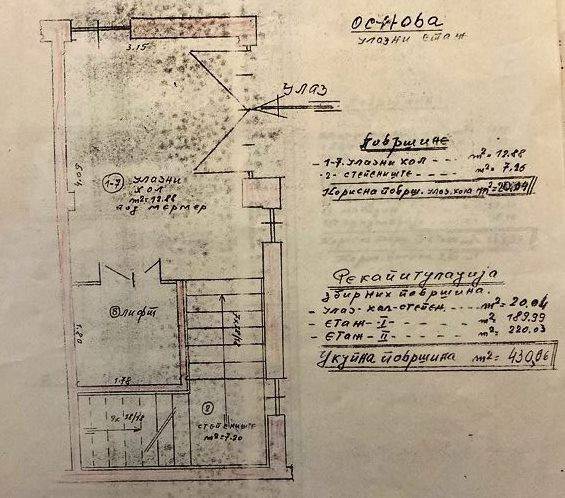 ОСНОВА
УЛАЗНИ ЕТАЖ
3.15
УЛАЗ
6.04
1-7 УЛАЗНИ
ХОЛ
m²=12.88
ПОД МЕРМЕР
ПОВРШИНЕ
- 1-7. УЛАЗНИ ХОЛ m²= 12.88
- 2- СТЕПЕНИШТЕ m²= 7.
КОРИСНА ПОВРШ. УЛАЗ. ХОЛА m²=20.04
ЛИФТ
1.80
1.78
РЕКАПИТУЛАЦИЈА
ЗБИРНИХ ПОВРШИНА.
- УЛАЗ. ХОЛ-СТЕПЕН. m² 20.04
- ЕТАЖ-I- m² 189.99
- ЕТАЖ-II m² 220.03
УКУПНА ПОВРШИНА m²= 430,06
2
СТЕПЕНИШТЕ
m²=7.20